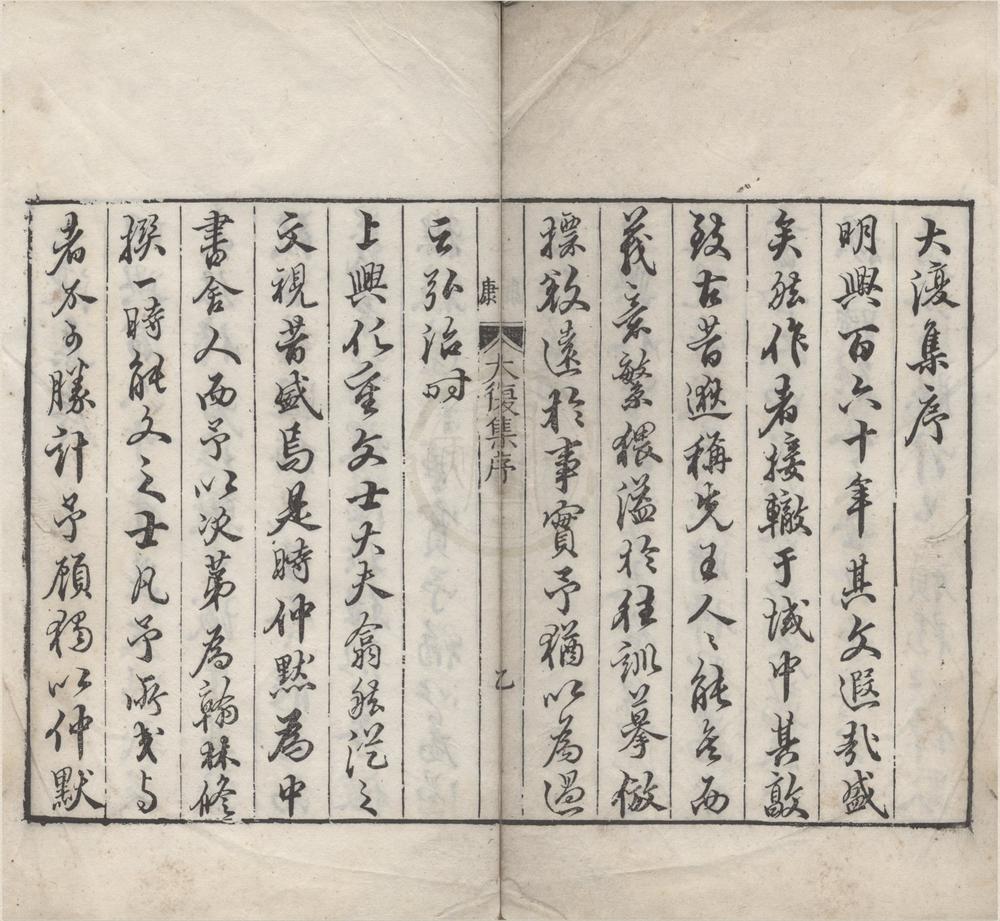 大復集序
明興百六十年其文遐哉盛
矣然作者接轍于域中其
致古昔遜稱先王人〻能而
義意繁猥溢於往訓摹倣
摽敚遠於事實予猶以為過
康 大復集序 乙
云弘治时
上興化重文士大夫翕然從之
文視昔盛焉是時仲默為中
書舍人而予以次第為翰林修
撰一時能文之士凡予所交与
者不可勝計予顧獨以仲默